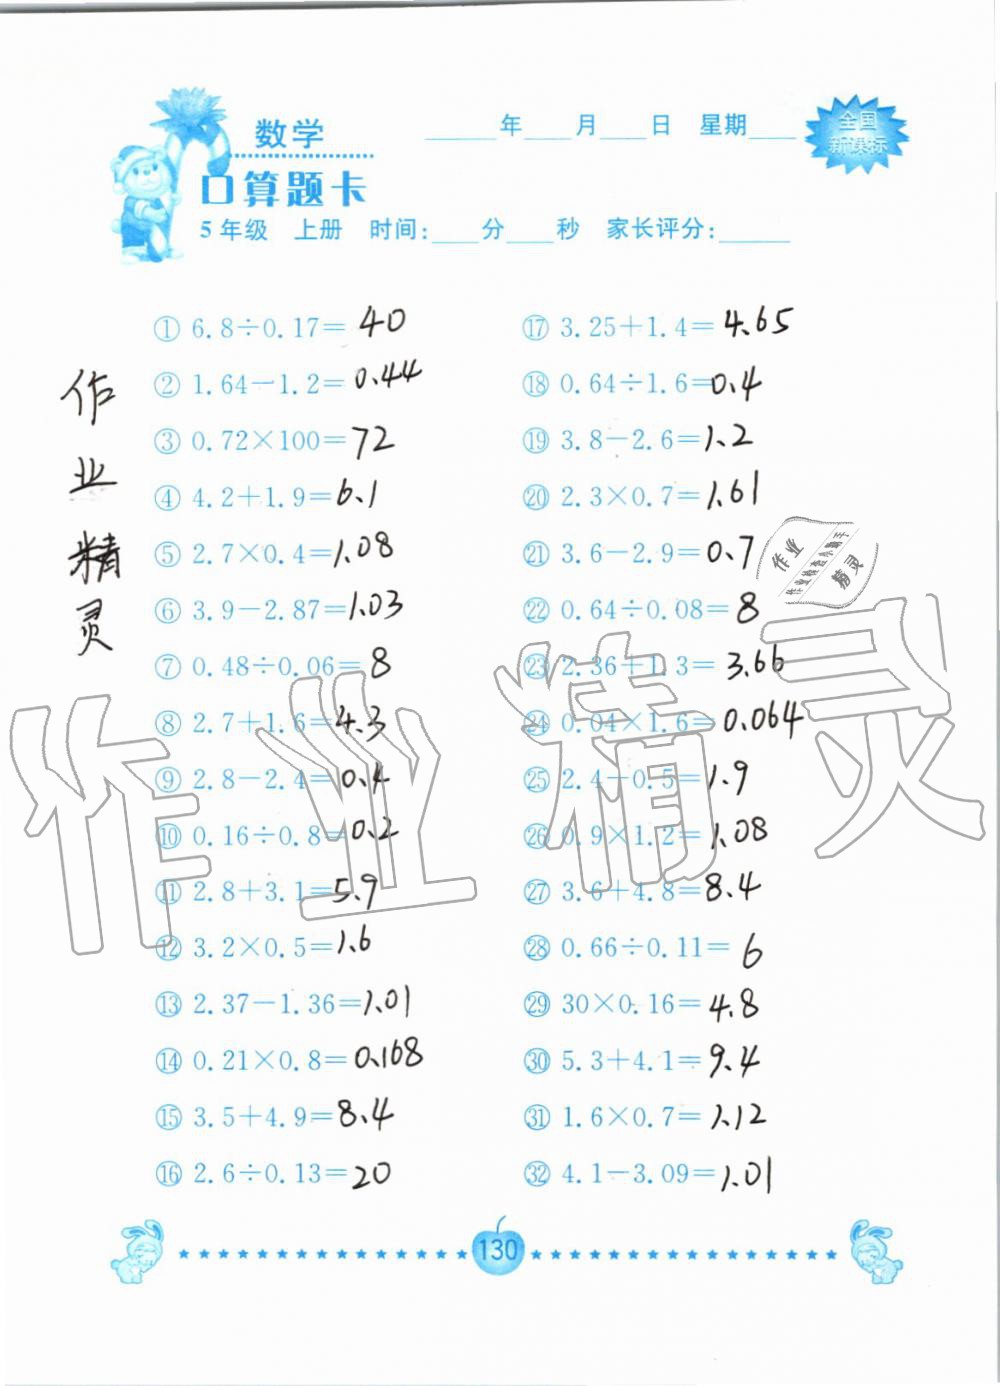 数学
口算题卡
____年____月____日 星期____
全国
新课标
5年级 上册 时间:____分____秒 家长评分:______
作业精灵
① 6.8÷0.17=40
② 1.64-1.2=0.44
③ 0.72×100=72
④ 4.2+1.9=6.1
⑤ 2.7×0.4=1.08
⑥ 3.9-2.87=1.03
⑦ 0.48÷0.06=8
⑧ 2.7+1.6=4.3
⑨ 2.8-2.4=0.4
⑩ 0.16÷0.8=0.2
⑪ 2.8+3.1=5.9
⑫ 3.2×0.5=1.6
⑬ 2.37-1.36=1.01
⑭ 0.21×0.8=0.168
⑮ 3.5+4.9=8.4
⑯ 2.6÷0.13=20
⑰ 3.25+1.4=4.65
⑱ 0.64÷1.6=0.4
⑲ 3.8-2.6=1.2
⑳ 2.3×0.7=1.61
㉑ 3.6-2.9=0.7
㉒ 0.64÷0.08=8
㉓ 2.36+1.3=3.66
㉔ 0.04×1.6=0.064
㉕ 2.4-0.5=1.9
㉖ 0.9×1.2=1.08
㉗ 3.6+4.8=8.4
㉘ 0.66÷0.11=6
㉙ 30×0.16=4.8
㉚ 5.3+4.1=9.4
㉛ 1.6×0.7=1.12
㉜ 4.1-3.09=1.01
作业
作业检查小助手
精灵
作业精灵
130